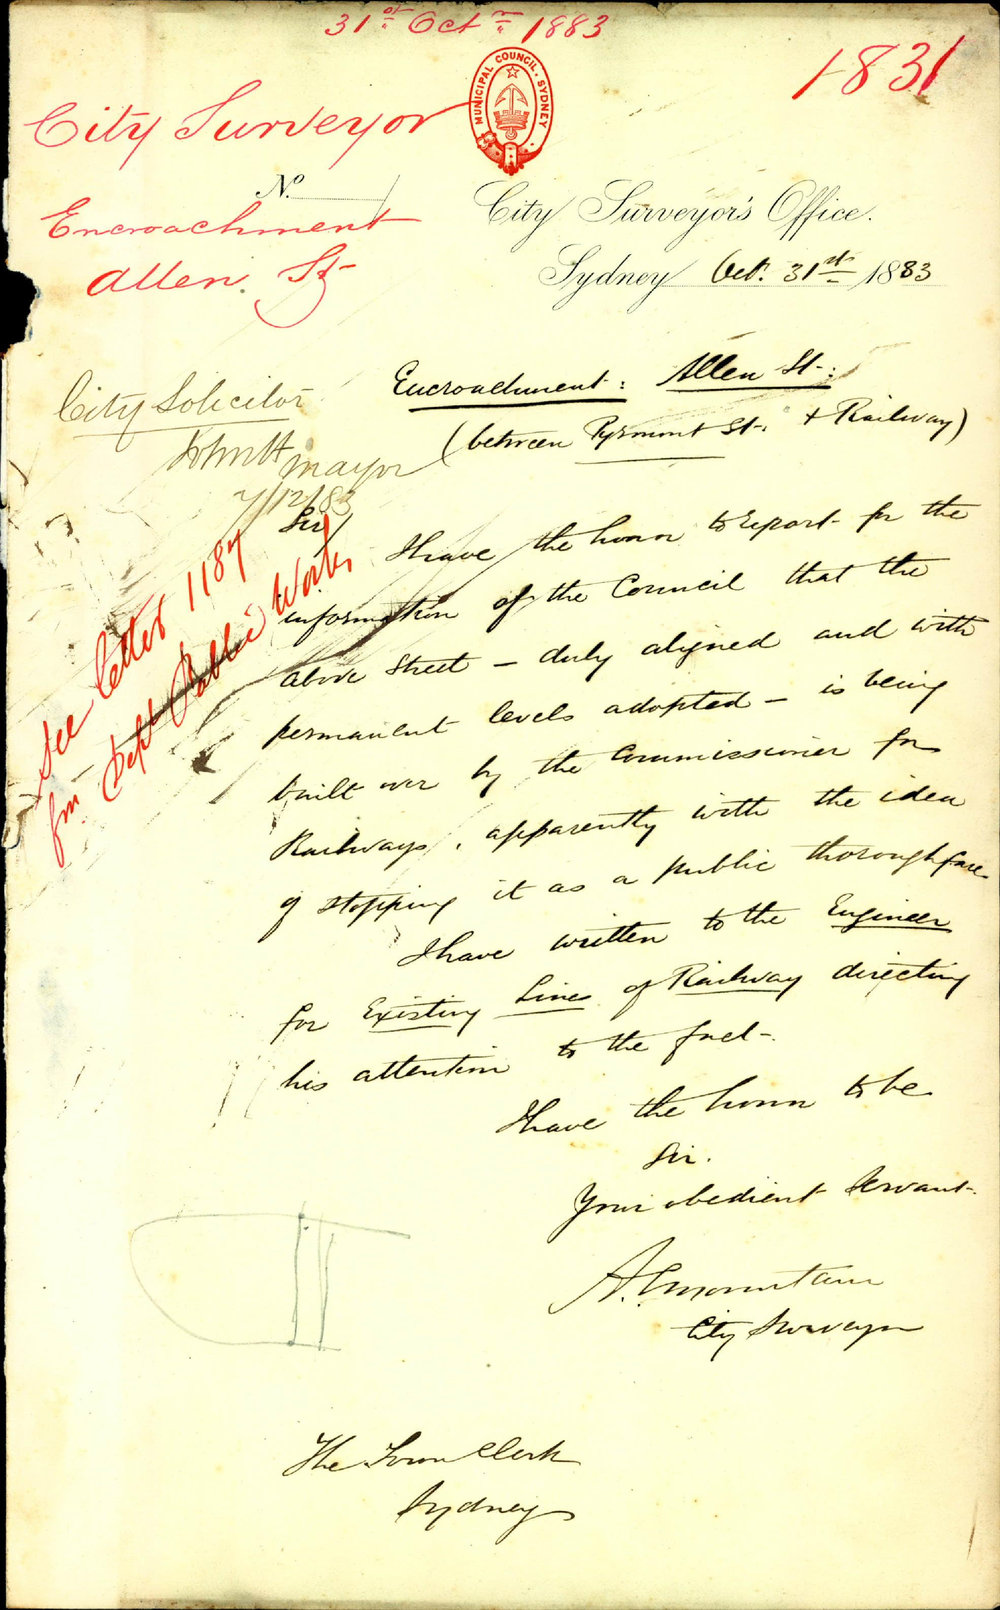 31st Octr 1883
1831
MUNICIPAL COUNCIL. SYDNEY
City Surveyor
No.
Encroachment
Allen St
City Surveyor's Office.
Sydney Oct. 31st 1883
City Solicitor
John H
mayor
7/12/83
See letter 1187
fm Dept Public Works
Encroachment: Allen St:
(between Pyrmont St. & Railway)
Sir/
I have the honor to report for the
information of the Council that the
above street – duly aligned and with
permanent levels adopted – is being
built over by the Commissioner for
Railways, apparently with the idea
of stopping it as a public thoroughfare
I have written to the Engineer
for Existing Lines of Railway directing
his attention to the fact.
I have the honor to be
Sir.
Your obedient Servant.
A. C. Mountain
City Surveyor
The Town Clerk
Sydney